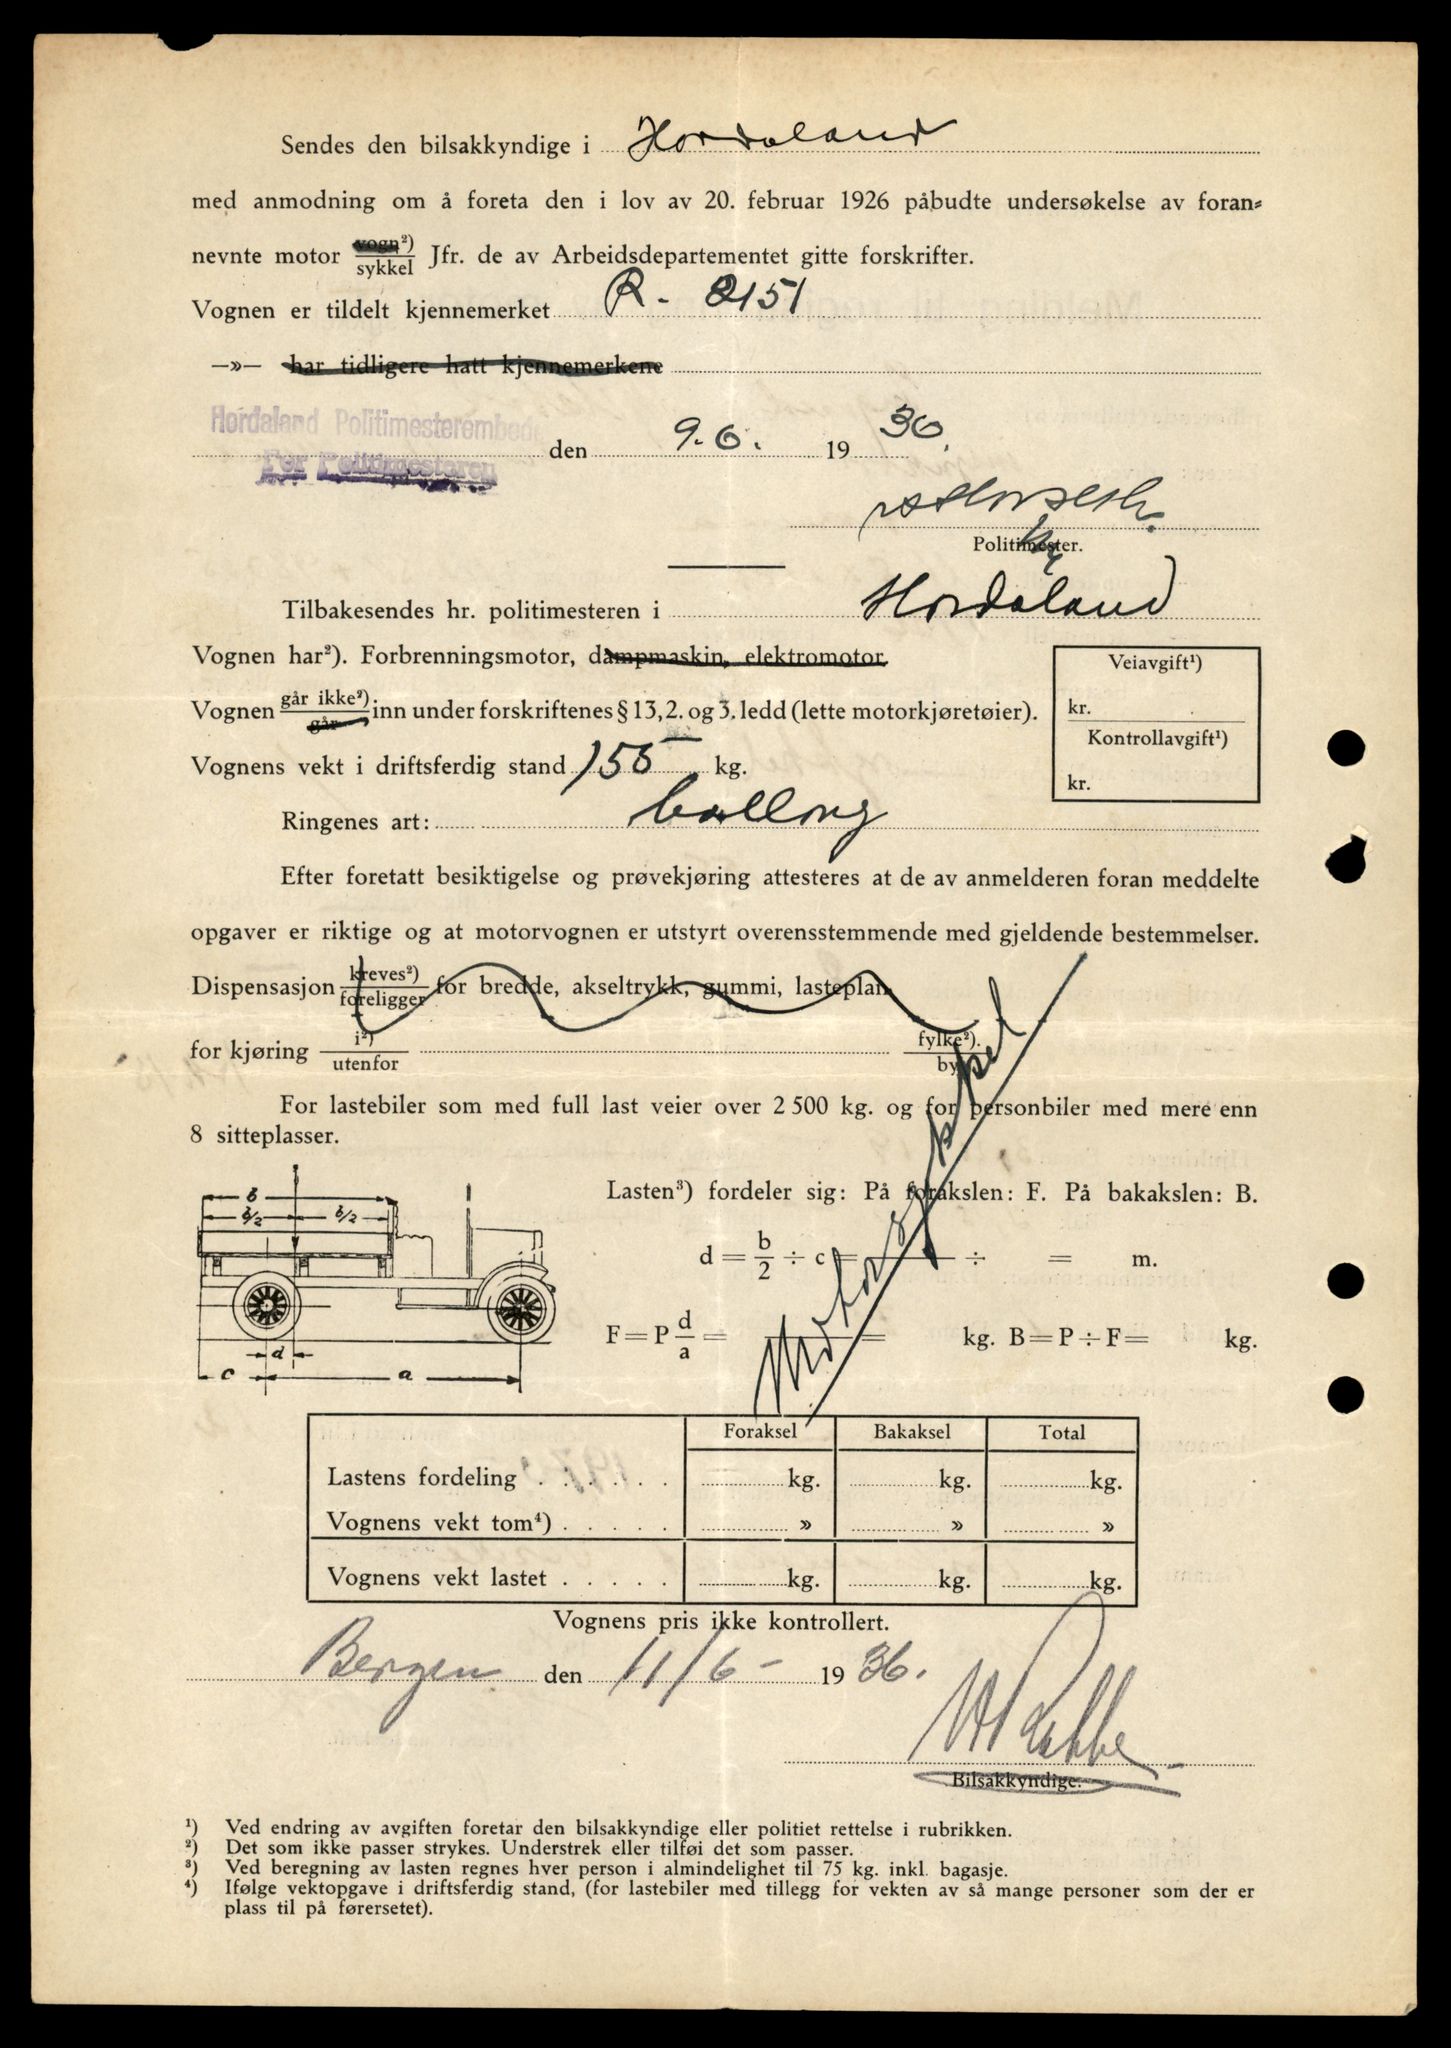 Sendes den bilsakkyndige i Hordaland
med anmodning om å foreta den i lov av 20. februar 1926 påbudte undersøkelse av foran=
nevnte motor vogn²)/sykkel Jfr. de av Arbeidsdepartementet gitte forskrifter.
Vognen er tildelt kjennemerket R- 2151
—»— har tidligere hatt kjennemerkene
Hordaland Politimesterembede
den 9.6. 1936.
For Politimesteren
Politimester.
Tilbakesendes hr. politimesteren i Hordaland
Vognen har²). Forbrenningsmotor, dampmaskin, elektromotor.
Vognen går ikke²)/går inn under forskriftenes § 13, 2. og 3. ledd (lette motorkjøretøier).
Veiavgift¹)
kr.
Kontrollavgift¹)
kr.
Vognens vekt i driftsferdig stand 155 kg.
Ringenes art: ballong
Efter foretatt besiktigelse og prøvekjøring attesteres at de av anmelderen foran meddelte
opgaver er riktige og at motorvognen er utstyrt overensstemmende med gjeldende bestemmelser.
Dispensasjon kreves²)/foreligger for bredde, akseltrykk, gummi, lasteplan
for kjøring i²)/utenfor fylke²)./by
For lastebiler som med full last veier over 2 500 kg. og for personbiler med mere enn
8 sitteplasser.
Motorsykkel
Lasten³) fordeler sig: På forakslen: F. På bakakslen: B.
d = b/2 ÷ c = ÷ = m.
F = P d/a = = kg. B = P ÷ F = kg.
b
b/2 b/2
d
c a
Foraksel Bakaksel Total
Lastens fordeling . . . . . . kg. kg. kg.
Vognens vekt tom⁴) . . . . . » » »
Vognens vekt lastet . . . . . kg. kg. kg.
Vognens pris ikke kontrollert.
Bergen den 11/6- 1936.
Bilsakkyndige.
¹) Ved endring av avgiften foretar den bilsakkyndige eller politiet rettelse i rubrikken.
²) Det som ikke passer strykes. Understrek eller tilføi det som passer.
³) Ved beregning av lasten regnes hver person i almindelighet til 75 kg. inkl. bagasje.
⁴) Ifølge vektopgave i driftsferdig stand, (for lastebiler med tillegg for vekten av så mange personer som der er
plass til på førersetet).